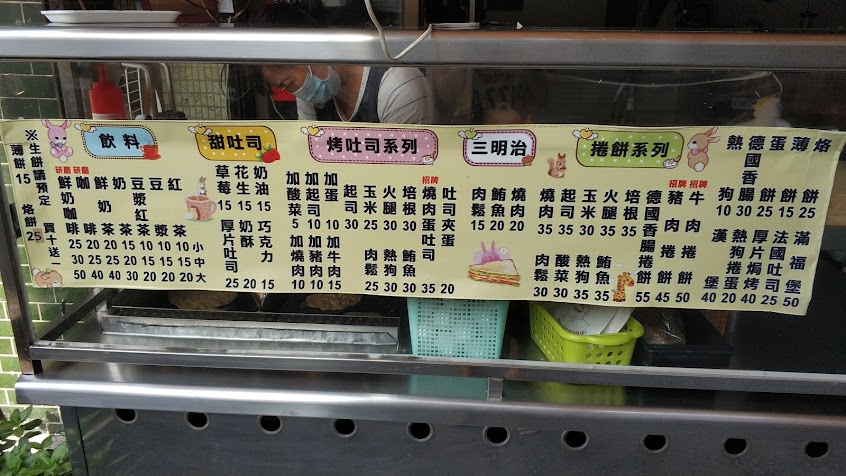 ※生餅請預定
薄餅15 烙餅25 買十送一
飲料
研磨 鮮奶咖啡 25 50
研磨 咖啡 20 40
鮮奶茶 20 40
奶茶 15 30
豆漿紅茶 10 20
豆漿 10 20
紅茶 10 20
小中大
甜吐司
草莓 15
花生
奶油 15
厚片吐司 25
奶酥 20
巧克力 15
烤吐司系列
加酸菜 5
加起蛋 10
起司 30
玉米 25
火腿 30
培根 30
招牌 燒肉蛋吐司 35
吐司夾蛋 20
加燒肉 10
加豬肉 10
加牛肉 15
肉鬆 25
熱狗 30
鮪魚 30
三明治
肉鬆 15
鮪魚 20
燒肉 20
捲餅系列
燒肉 35
起司 35
玉米 30
火腿 35
培根 35
德國香腸捲餅 55
招牌 豬肉捲餅 45
招牌 牛肉捲餅 50
肉鬆 30
酸菜 30
熱狗 35
鮪魚 35
熱狗 10
德國香腸 30
蛋餅 25
薄餅 15
烙餅 25
漢堡 40
熱狗捲蛋 20
厚片焗烤 40
法國吐司 25
滿福堡 50